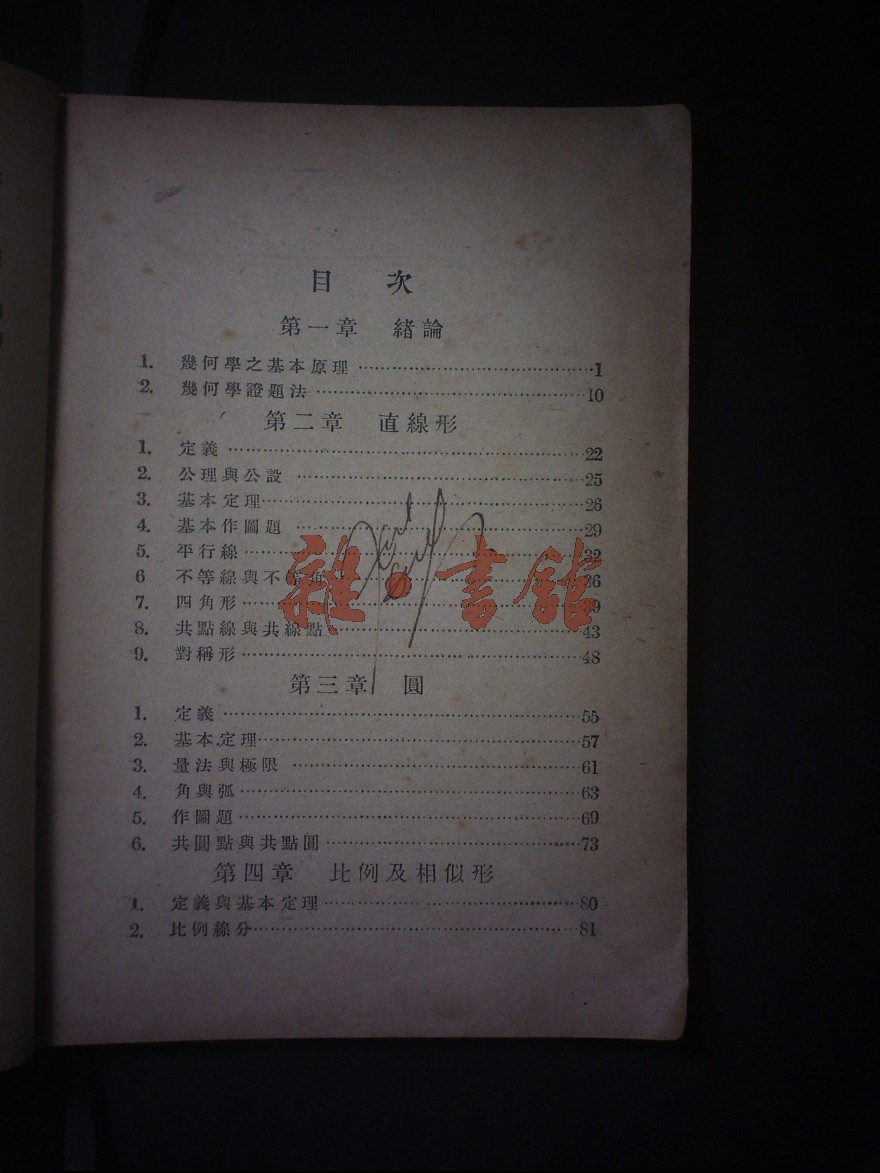 目 次
第一章 緒論
1. 幾何學之基本原理 ……………………1
2. 幾何學證題法 ……………………10
第二章 直線形
1. 定義 ……………………22
2. 公理與公設 ……………………25
3. 基本定理……………………26
4. 基本作圖題 ……………………29
5. 平行線……………………32
6 不等線與不等角……………………36
7. 四角形……………………39
8. 共點線與共線點……………………43
9. 對稱形……………………48
雜·書館
第三章 圓
1. 定義 ……………………55
2. 基本定理……………………57
3. 量法與極限 ……………………61
4. 角與弧……………………63
5. 作圖題……………………69
6. 共圓點與共點圓……………………73
第四章 比例及相似形
1. 定義與基本定理……………………80
2. 比例線分……………………81